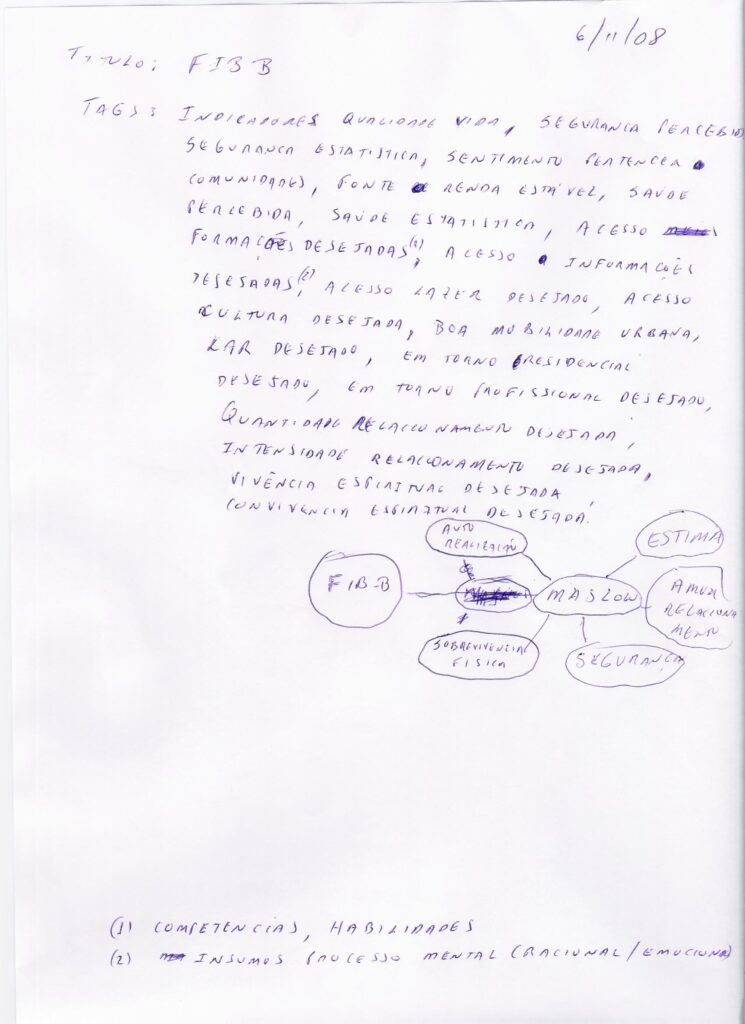 6/11/08
TITULO: FIBB
TAGS: INDICADORES QUALIDADE VIDA, SEGURANCA PERCEBIDA
SEGURANCA ESTATISTICA, SENTIMENTO PERTENCER
COMUNIDADES, FONTE RENDA ESTÁVEL, SAÚDE
PERCEBIDA, SAÚDE ESTATISTICA, ACESSO
FORMAÇÕES DESEJADAS(1), ACESSO INFORMAÇÕES
DESEJADAS(2), ACESSO LAZER DESEJADO, ACESSO
CULTURA DESEJADA, BOA MOBILIDADE URBANA,
LAR DESEJADO, EM TORNO RESIDENCIAL
DESEJADO, EM TORNO PROFISSIONAL DESEJADO,
QUANTIDADE RELACIONAMENTO DESEJADA,
INTENSIDADE RELACIONAMENTO DESEJADA,
VIVÊNCIA ESPIRITUAL DESEJADA,
CONVIVENCIA ESPIRITUAL DESEJADA.
AUTO
REALIZAÇÃO
ESTIMA
FIB-B
MASLOW
AMOR
RELACIONA
MENTO
SOBREVIVENCIA
FISICA
SEGURANÇA
(1) COMPETENCIAS, HABILIDADES
(2) INSUMOS PROCESSO MENTAL (RACIONAL/EMOCIONAL)